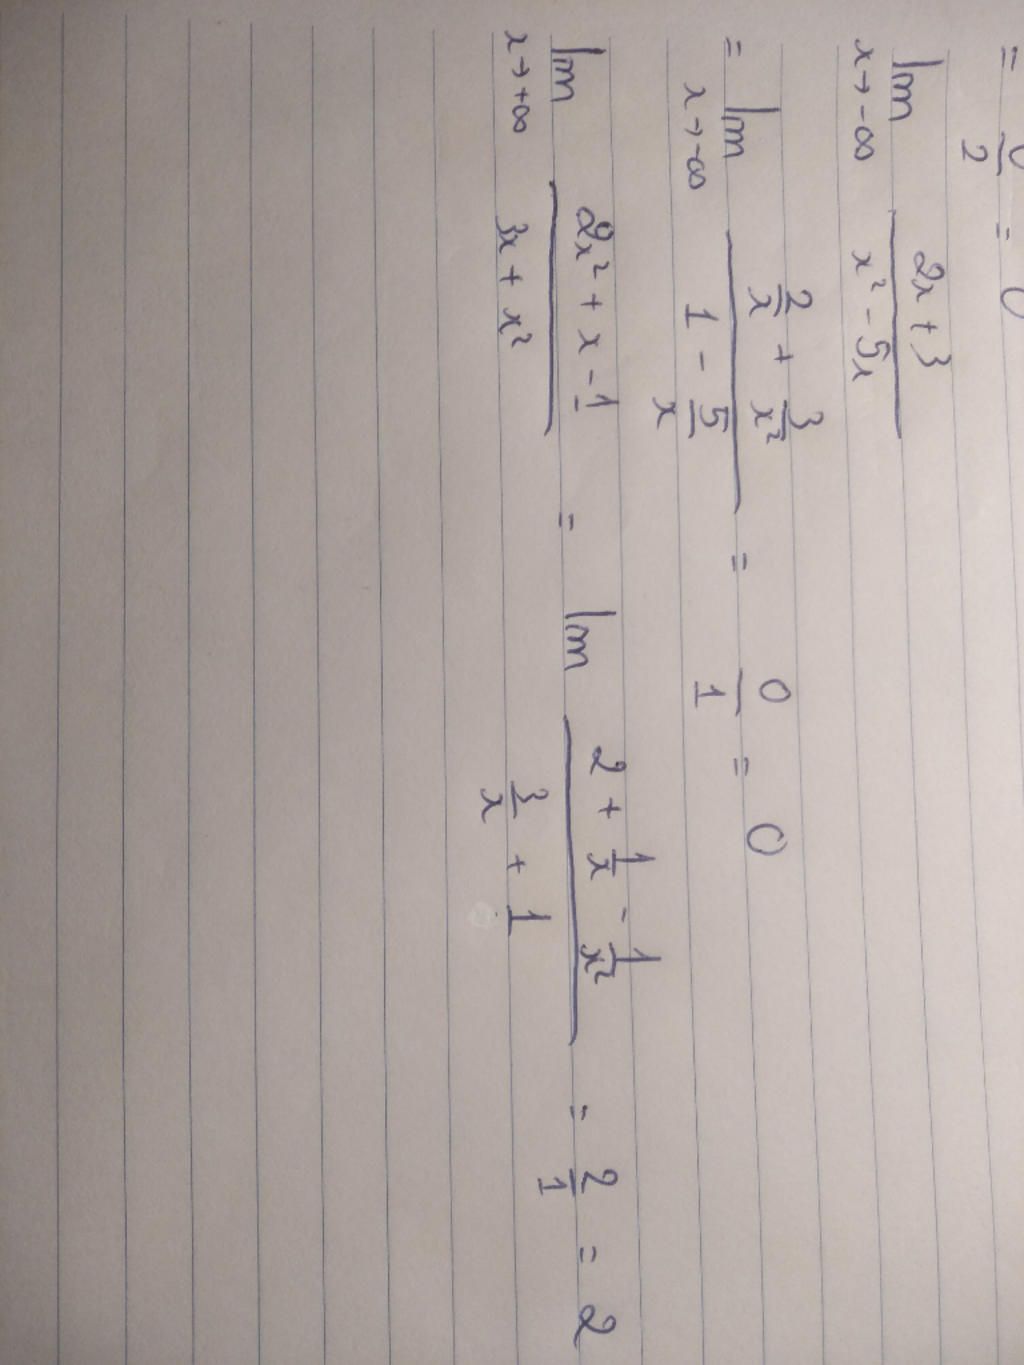 = 0/2 = 0
lim x→-∞ (2x + 3)/(x² - 5x)
= lim x→-∞ (2/x + 3/x²)/(1 - 5/x) = 0/1 = 0
lim x→+∞ (2x² + x - 1)/(3x + x²) = lim (2 + 1/x - 1/x²)/(3/x + 1) = 2/1 = 2